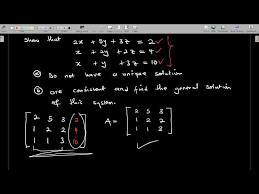 Show that 2x + 5y + 3z = 2
x + 2y + 2z = 4
x + y + 3z = 10
(a) Do not have a unique solution
(b) are consistent and find the general solution of this system.
[2 5 3 2
1 2 2 4
1 1 3 10]
A = [2 5 3
1 2 2
1 1 3]